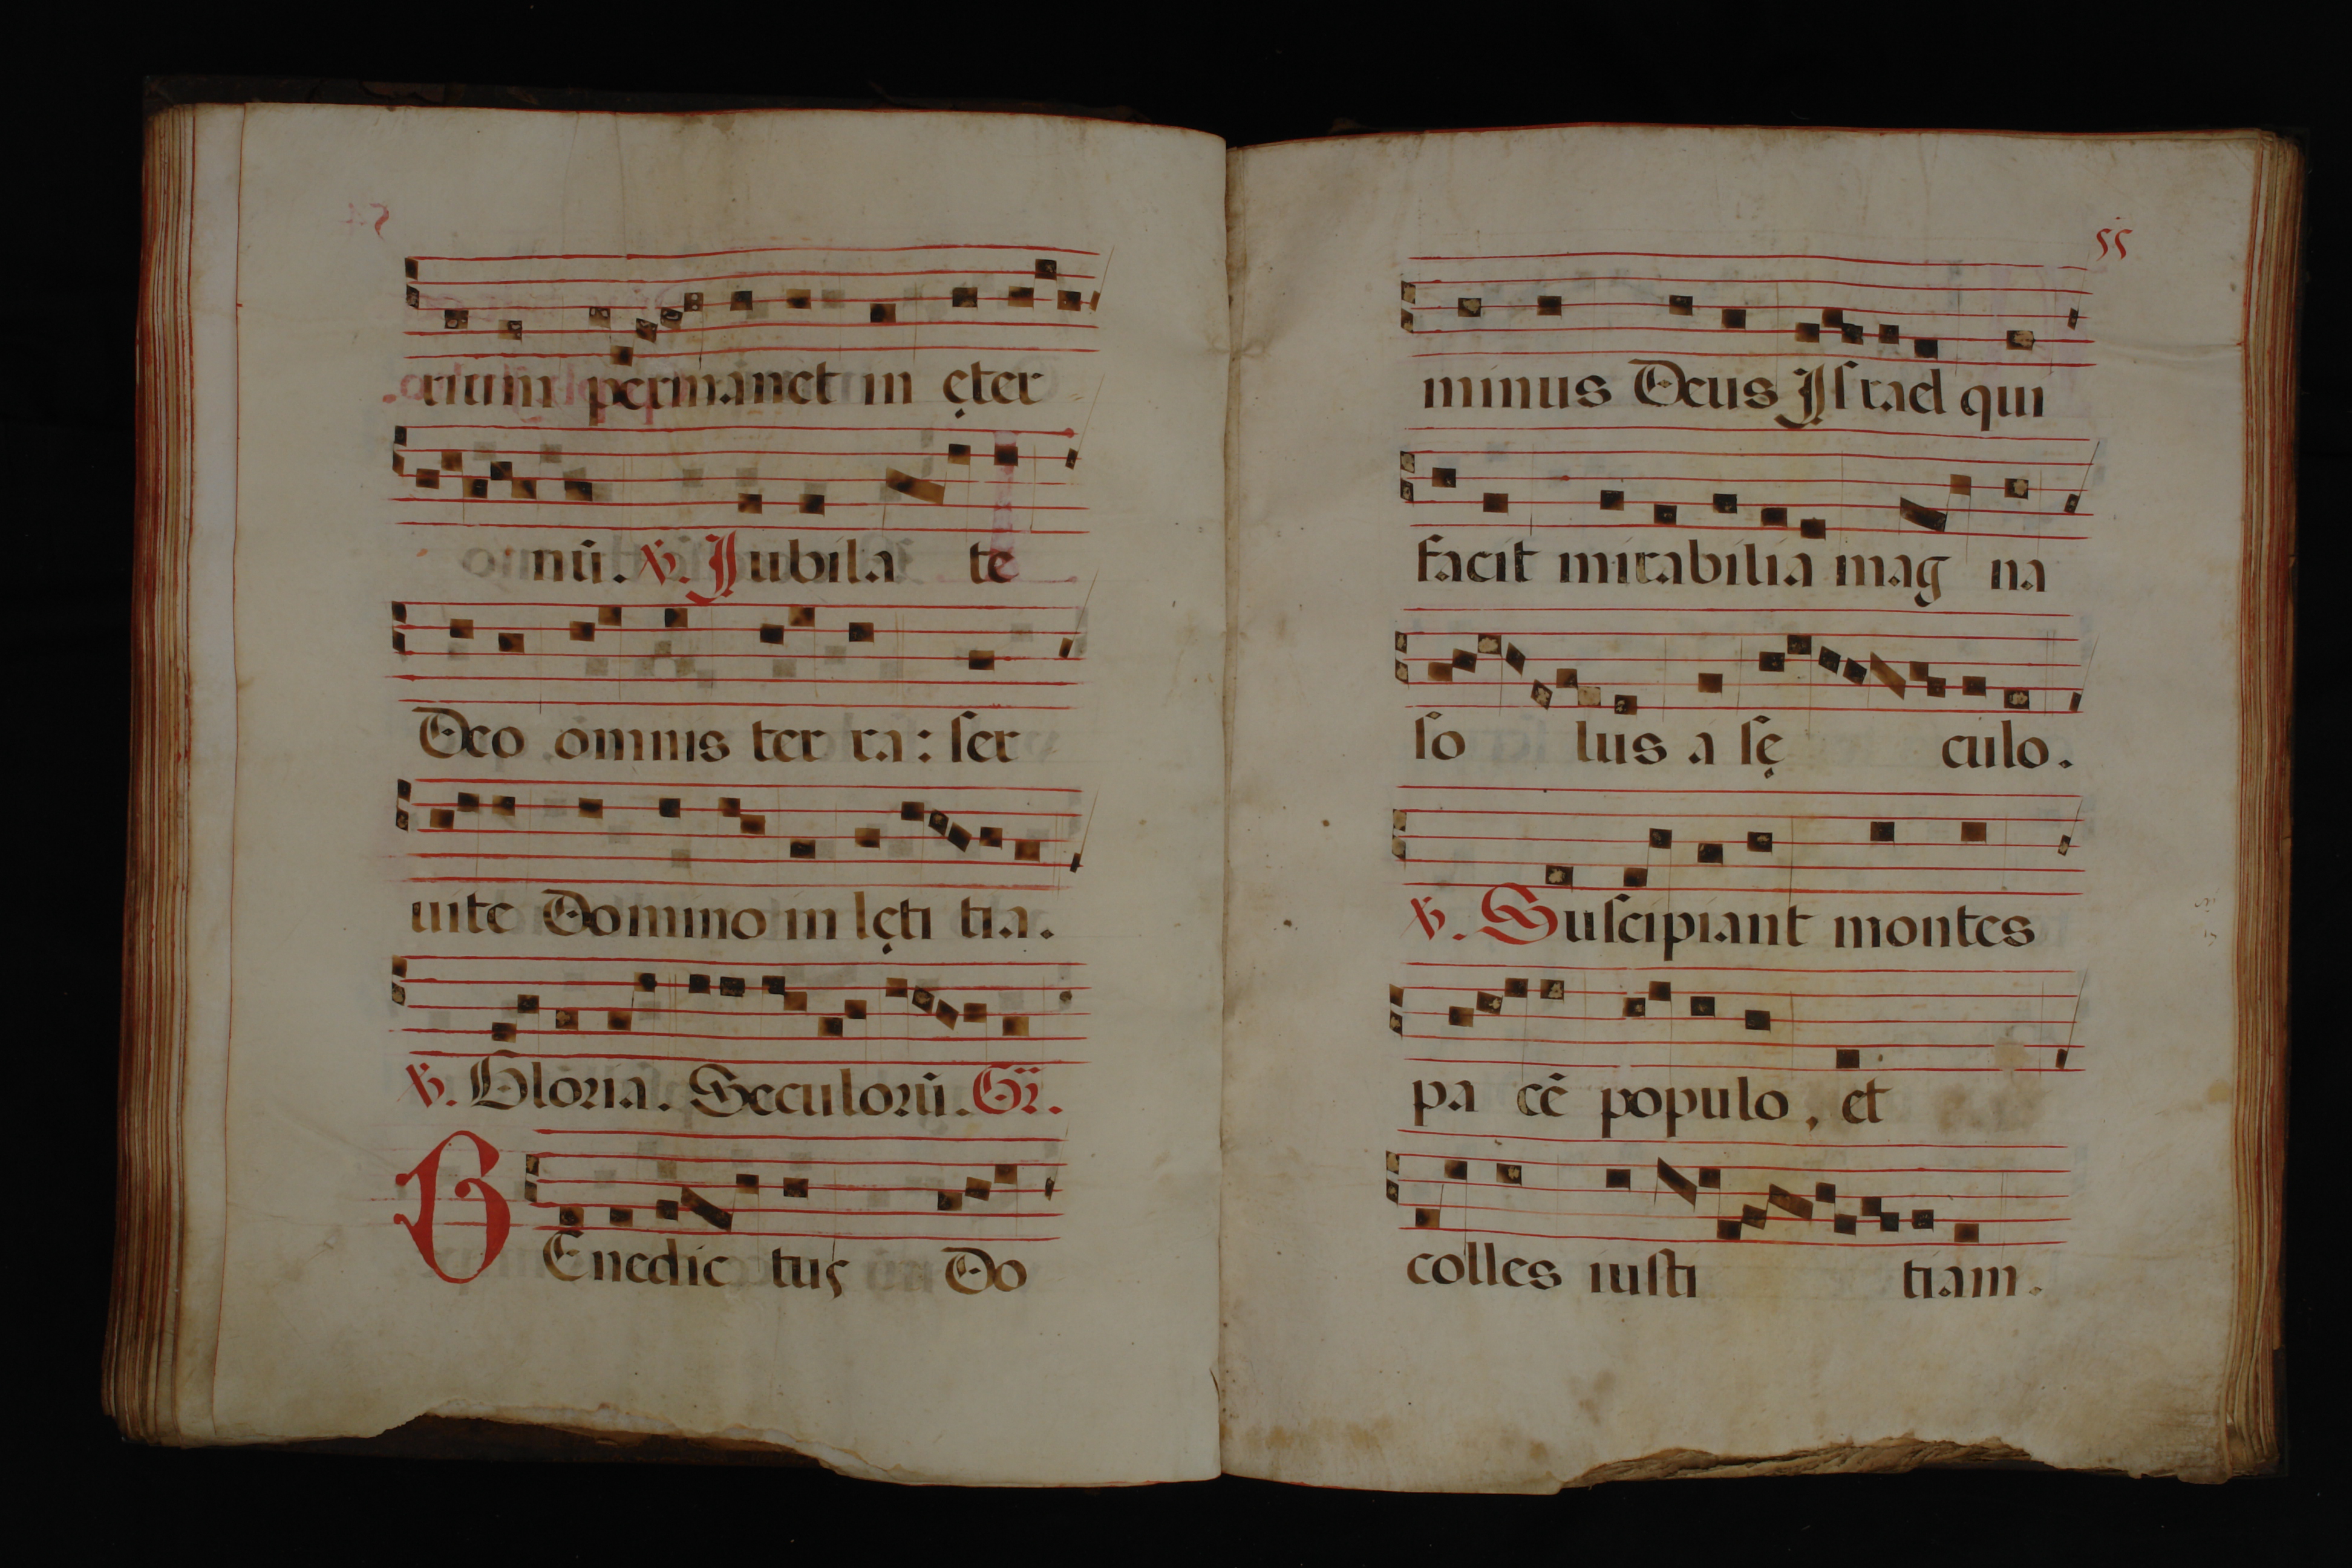 rium permanet in ęter
nū. ℣. Jubila te
Deo omnis ter ra: ſer
uite Domino in lęti tia.
℣. Gloria. Seculorū. Gř.
BEnedic tus Do
55
minus Deus Iſrael qui
facit mirabilia mag na
ſo lus a ſę culo.
℣. Suſcipiant montes
pa cē populo, et
colles iuſti tiam.